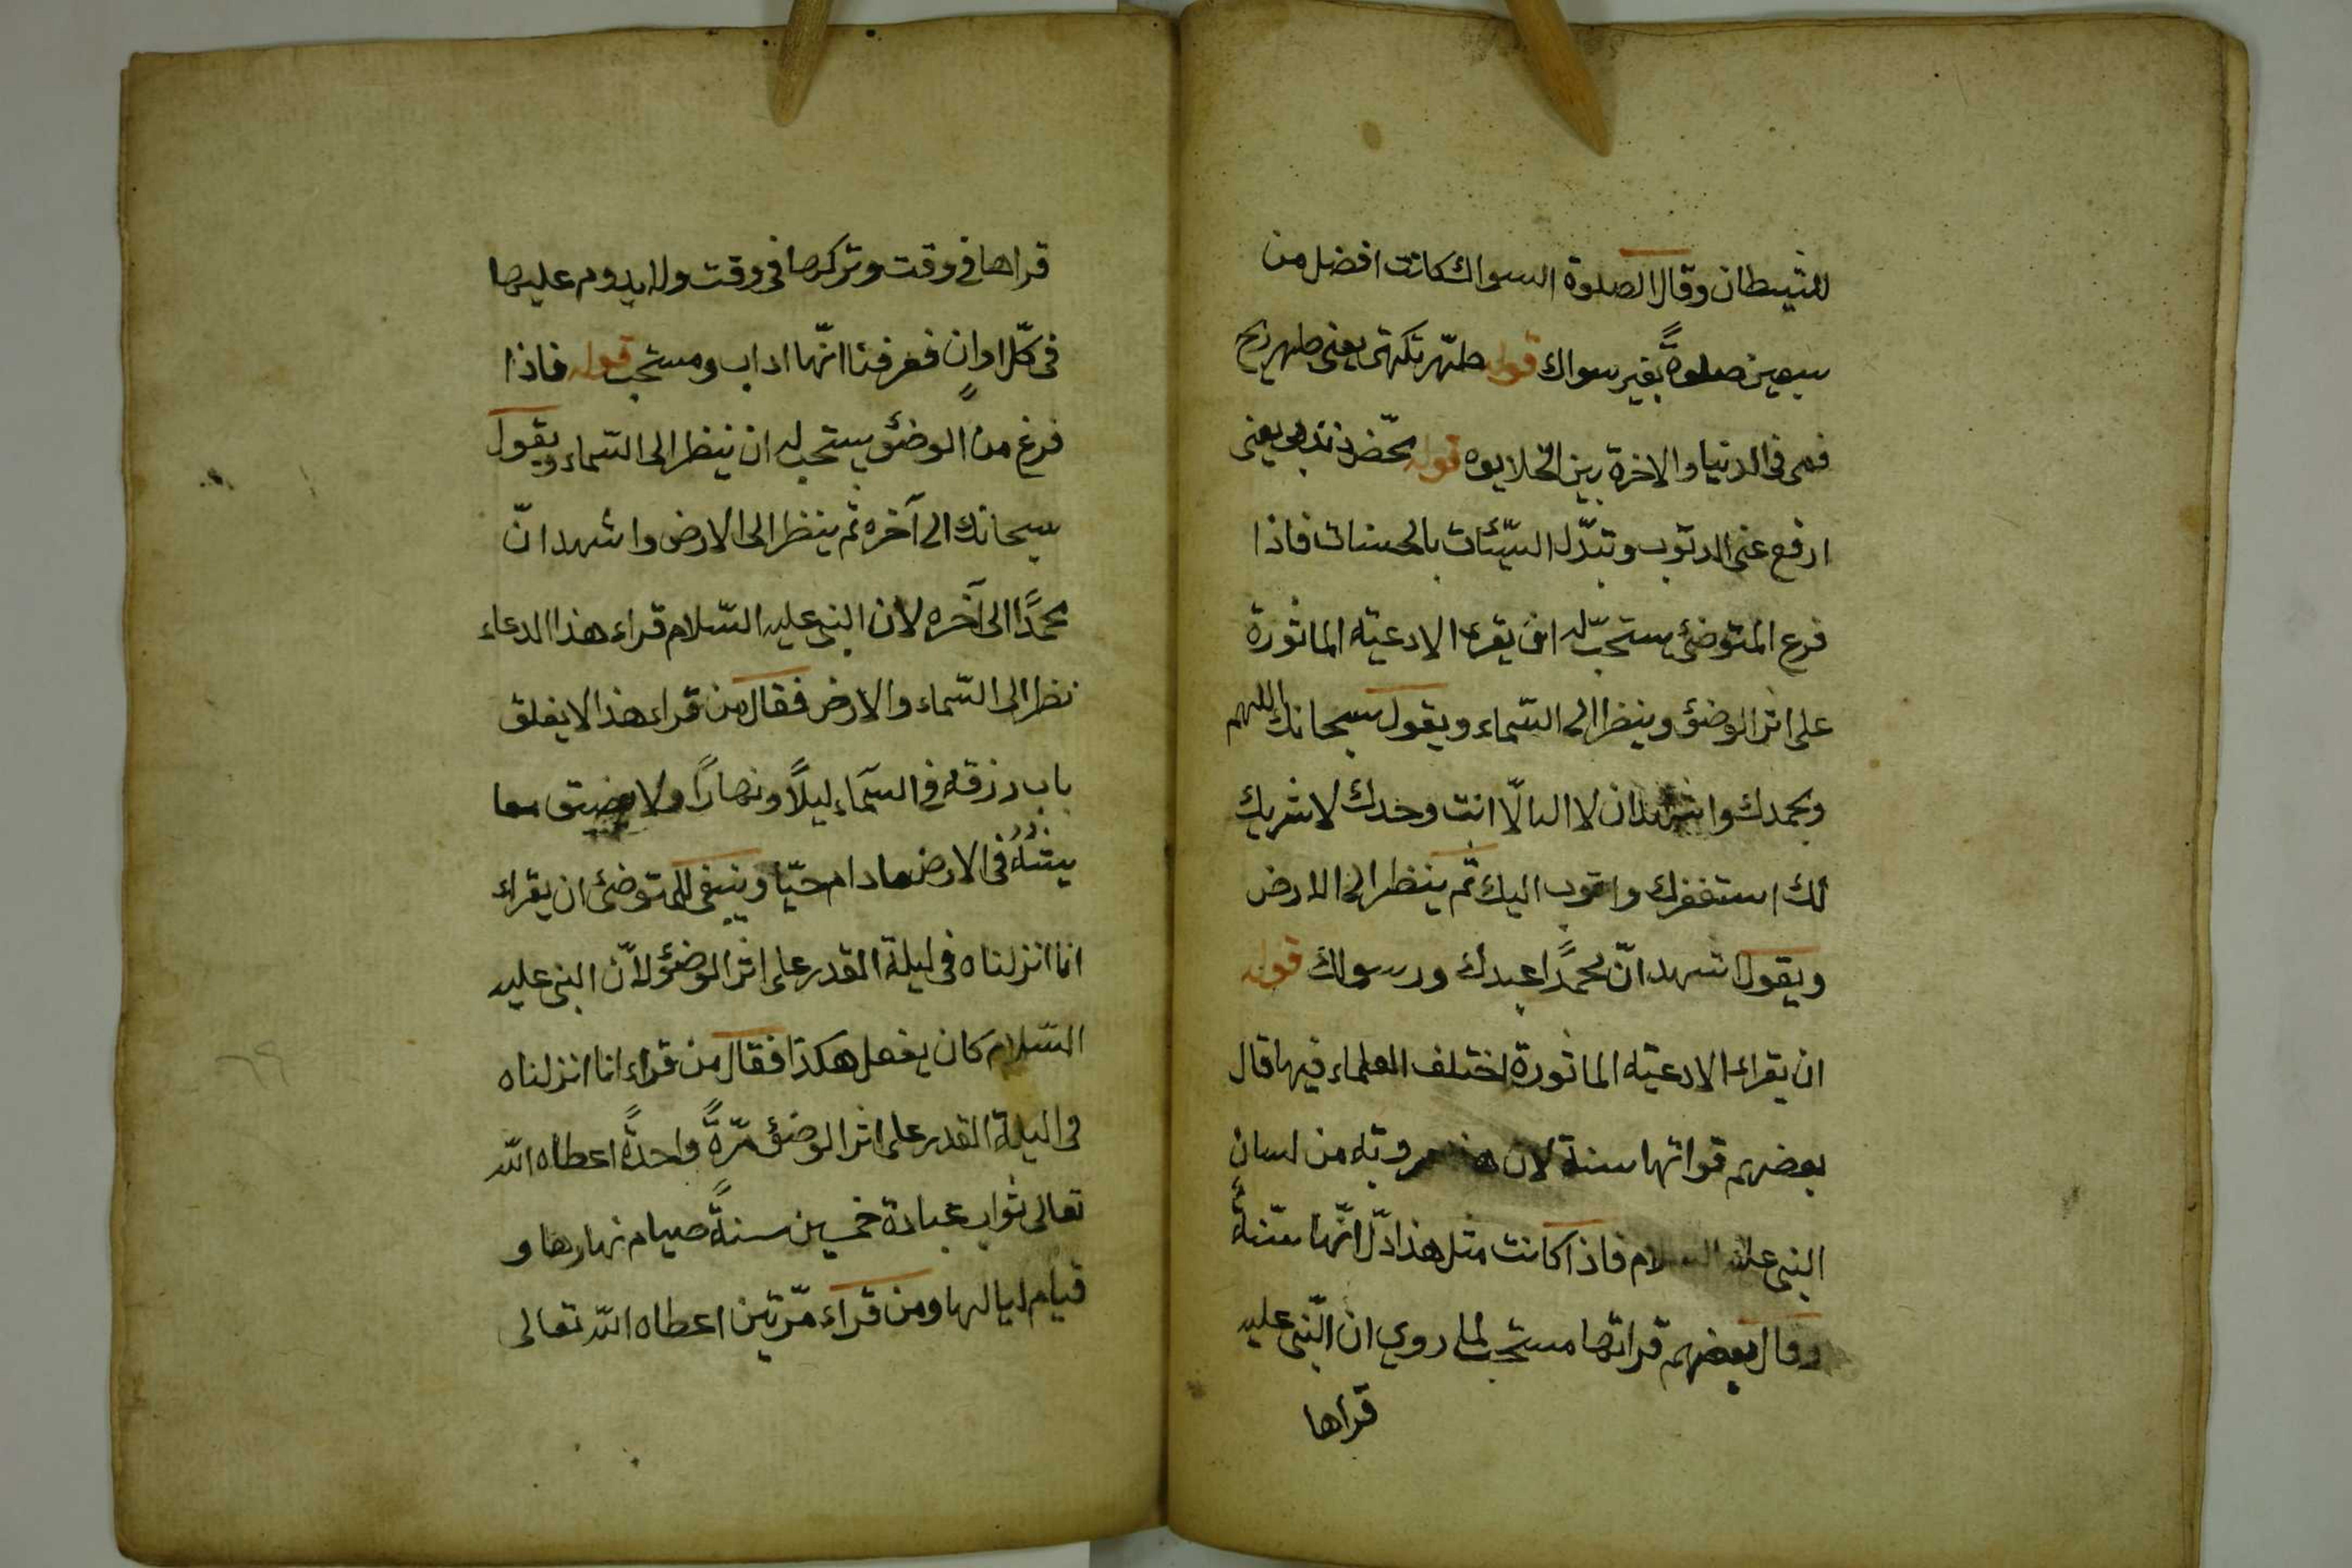 للشيطان وقال الصلوة السواك كانت افضل من
سبعين صلوةً بغير سواك قوله طهّر نكهتى يعنى طهر ريح
فمى فى الدنيا والاخرة بين الخلايوه قوله محّض ذنبى يعنى
ارفع عنى الذنوب وتبدّل السيّئات بالحسنات فاذا
فرع المتوضئ يستحبّ له ان يقرء الادعيّة الماثورة
على اثر الوضؤ وينظر الى السّماء ويقول سبحانك اللهم
وبحمدك واشهد ان لا اله الّا انت وحدك لا شريك
لك استغفرك واتوب اليك ثم ينظر الى الارض
ويقول اشهد انّ محمدًا عبدك ورسولك قوله
ان يقراء الادعيّة الماثورة اختلف العلماء فيها قال
بعضهم قراتها سنة لان مروية من لسان
النبى عليه السلام فاذا كانت مثل هذا دلّ انّها سنّةٌ
وقال بعضهم قراتها مستحب لما روي ان النّبى عليه
قراها
قراها فى وقت وتركها فى وقت ولا يدوم عليها
فى كلّ اوانٍ فعرفنا انّها اداب ومستحب قوله فاذا
فرغ من الوضؤ يستحب له ان ينظر الى السّماء ويقول
سبحانك الى آخره ثم ينظر الى الارض واشهد انّ
محمدًا الى آخره لان النبى عليه السّلام قراء هذا الدعاء
نظر الى السّماء والارض فقال من قراء هذا لا يغلق
باب رزقه فى السّماء ليلًا ونهارًا ولا يضيق
بيته فى الارض ما دام حيّا وينبغى للمتوضئ ان يقراء
انا انزلناه فى ليلة القدر على اثر الوضؤ لانّ النبى عليه
السّلام كان يفعل هكذا فقال من قراء انا انزلناه
فى اليلة القدر على اثر الوضؤ مرّةً واحدةً اعطاه الله
تعالى ثواب عبادة خمسين سنةً صيام نهارها و
قيام ليالها ومن قراء مرّتين اعطاه الله تعالى